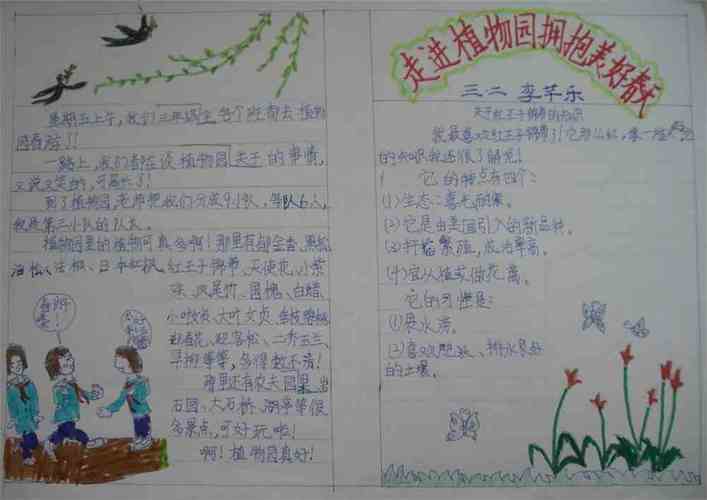 星期五上午,我们三年级全各个班前去植物
园看啦!!
一路上,我们都在谈植物园关于的事情,
又说又笑的,可高兴了!
到了植物园,老师把我们分成9小队,每队6人,
我是第三小队的队长。
植物园里的植物可真多啊!那里有郁金香、黑松
油松、日本红枫、红王子锦带、天使花、小紫
珠、凤尾竹、国槐、白蜡、
小叶女贞、大叶女贞、金枝
迎春花、迎客松、二乔玉兰、
等等,多得数不清!
那里还有农夫果园、岩
石园、大石桥、湖亭等很
多景点,可好玩啦!
啊!植物园真好!
走进植物园拥抱美好春天
三二 李芊乐
关于红王子锦带的知识
我最喜欢红王子锦带了!它那么红,像一座
的知识我还很了解呢!
它的特点有四个:
(1)生态:喜光耐寒。
(2)它是由美国引入的新品种。
(3)扦插繁殖,成活率高。
(4)宜从植或做花篱。
它的习惯是:
(1)畏水涝。
(2)喜欢肥沃、排水良好
的土壤。